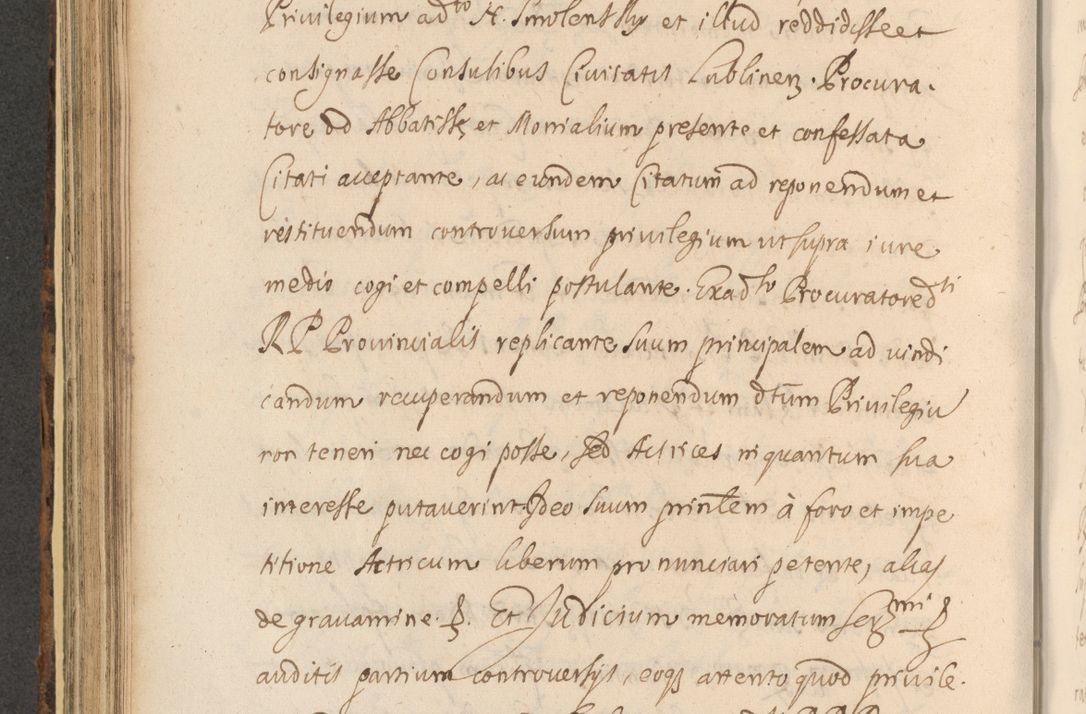 Privilegium ad^to N. Smolenskÿ et illud reddidisse et
consignasse Consulibus Civitatis Lublinen. Procura-
tore dd Abbatissę et Monialium presente et confessata
Citati acceptante, ac eundem Citatum ad reponendum et
restituendum controversum privilegium ut supra iure
medio cogi et compelli postulante. Ex ad^to Procuratore d^ti
RP Provincialis replicante suum principalem ad vindi
candum recuperandum et reponendum dtum Privilegiu
non teneri nec cogi posse, sed Actrices in quantum sua
interesse putaverint. Ideo suum prinlem à foro et impe
titione Actricum liberum pronunciari petente, alias
de gravamine. p. Et Judicium memoratum Ser^mi p
auditis partium controversijs, eoqз attento quod privile-